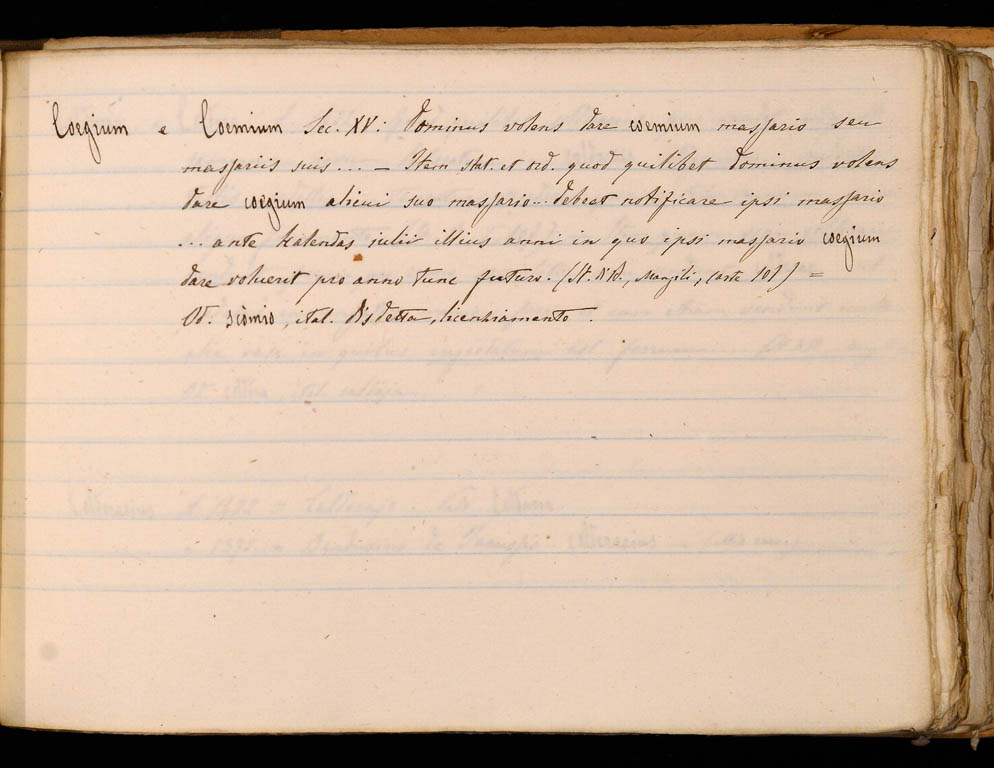 Coegium e Coemium Sec. XV: Dominus volens dare coemium massario seu
massariis suis ... — Item stat. et ord. quod quilibet dominus volens
dare coegium alicui suo massario... debeat notificare ipsi massario
... ante kalendas iulii illius anni in quo ipsi massario coegium
dare voluerit pro anno tunc futuro. (St. d'A., Mangili, carte 101) =
Od. scòmio, ital. disdetta, licenziamento.